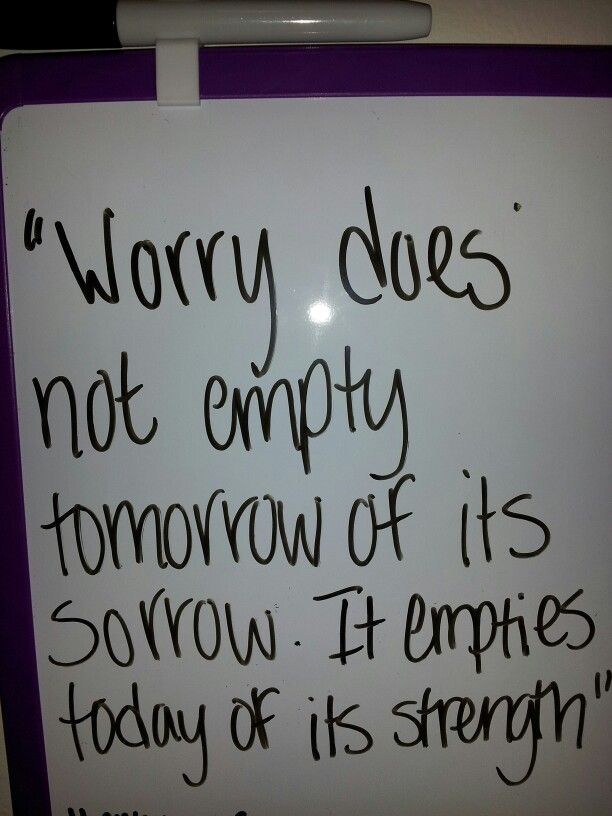 "Worry does
not empty
tomorrow of its
sorrow. It empties
today of its strength"